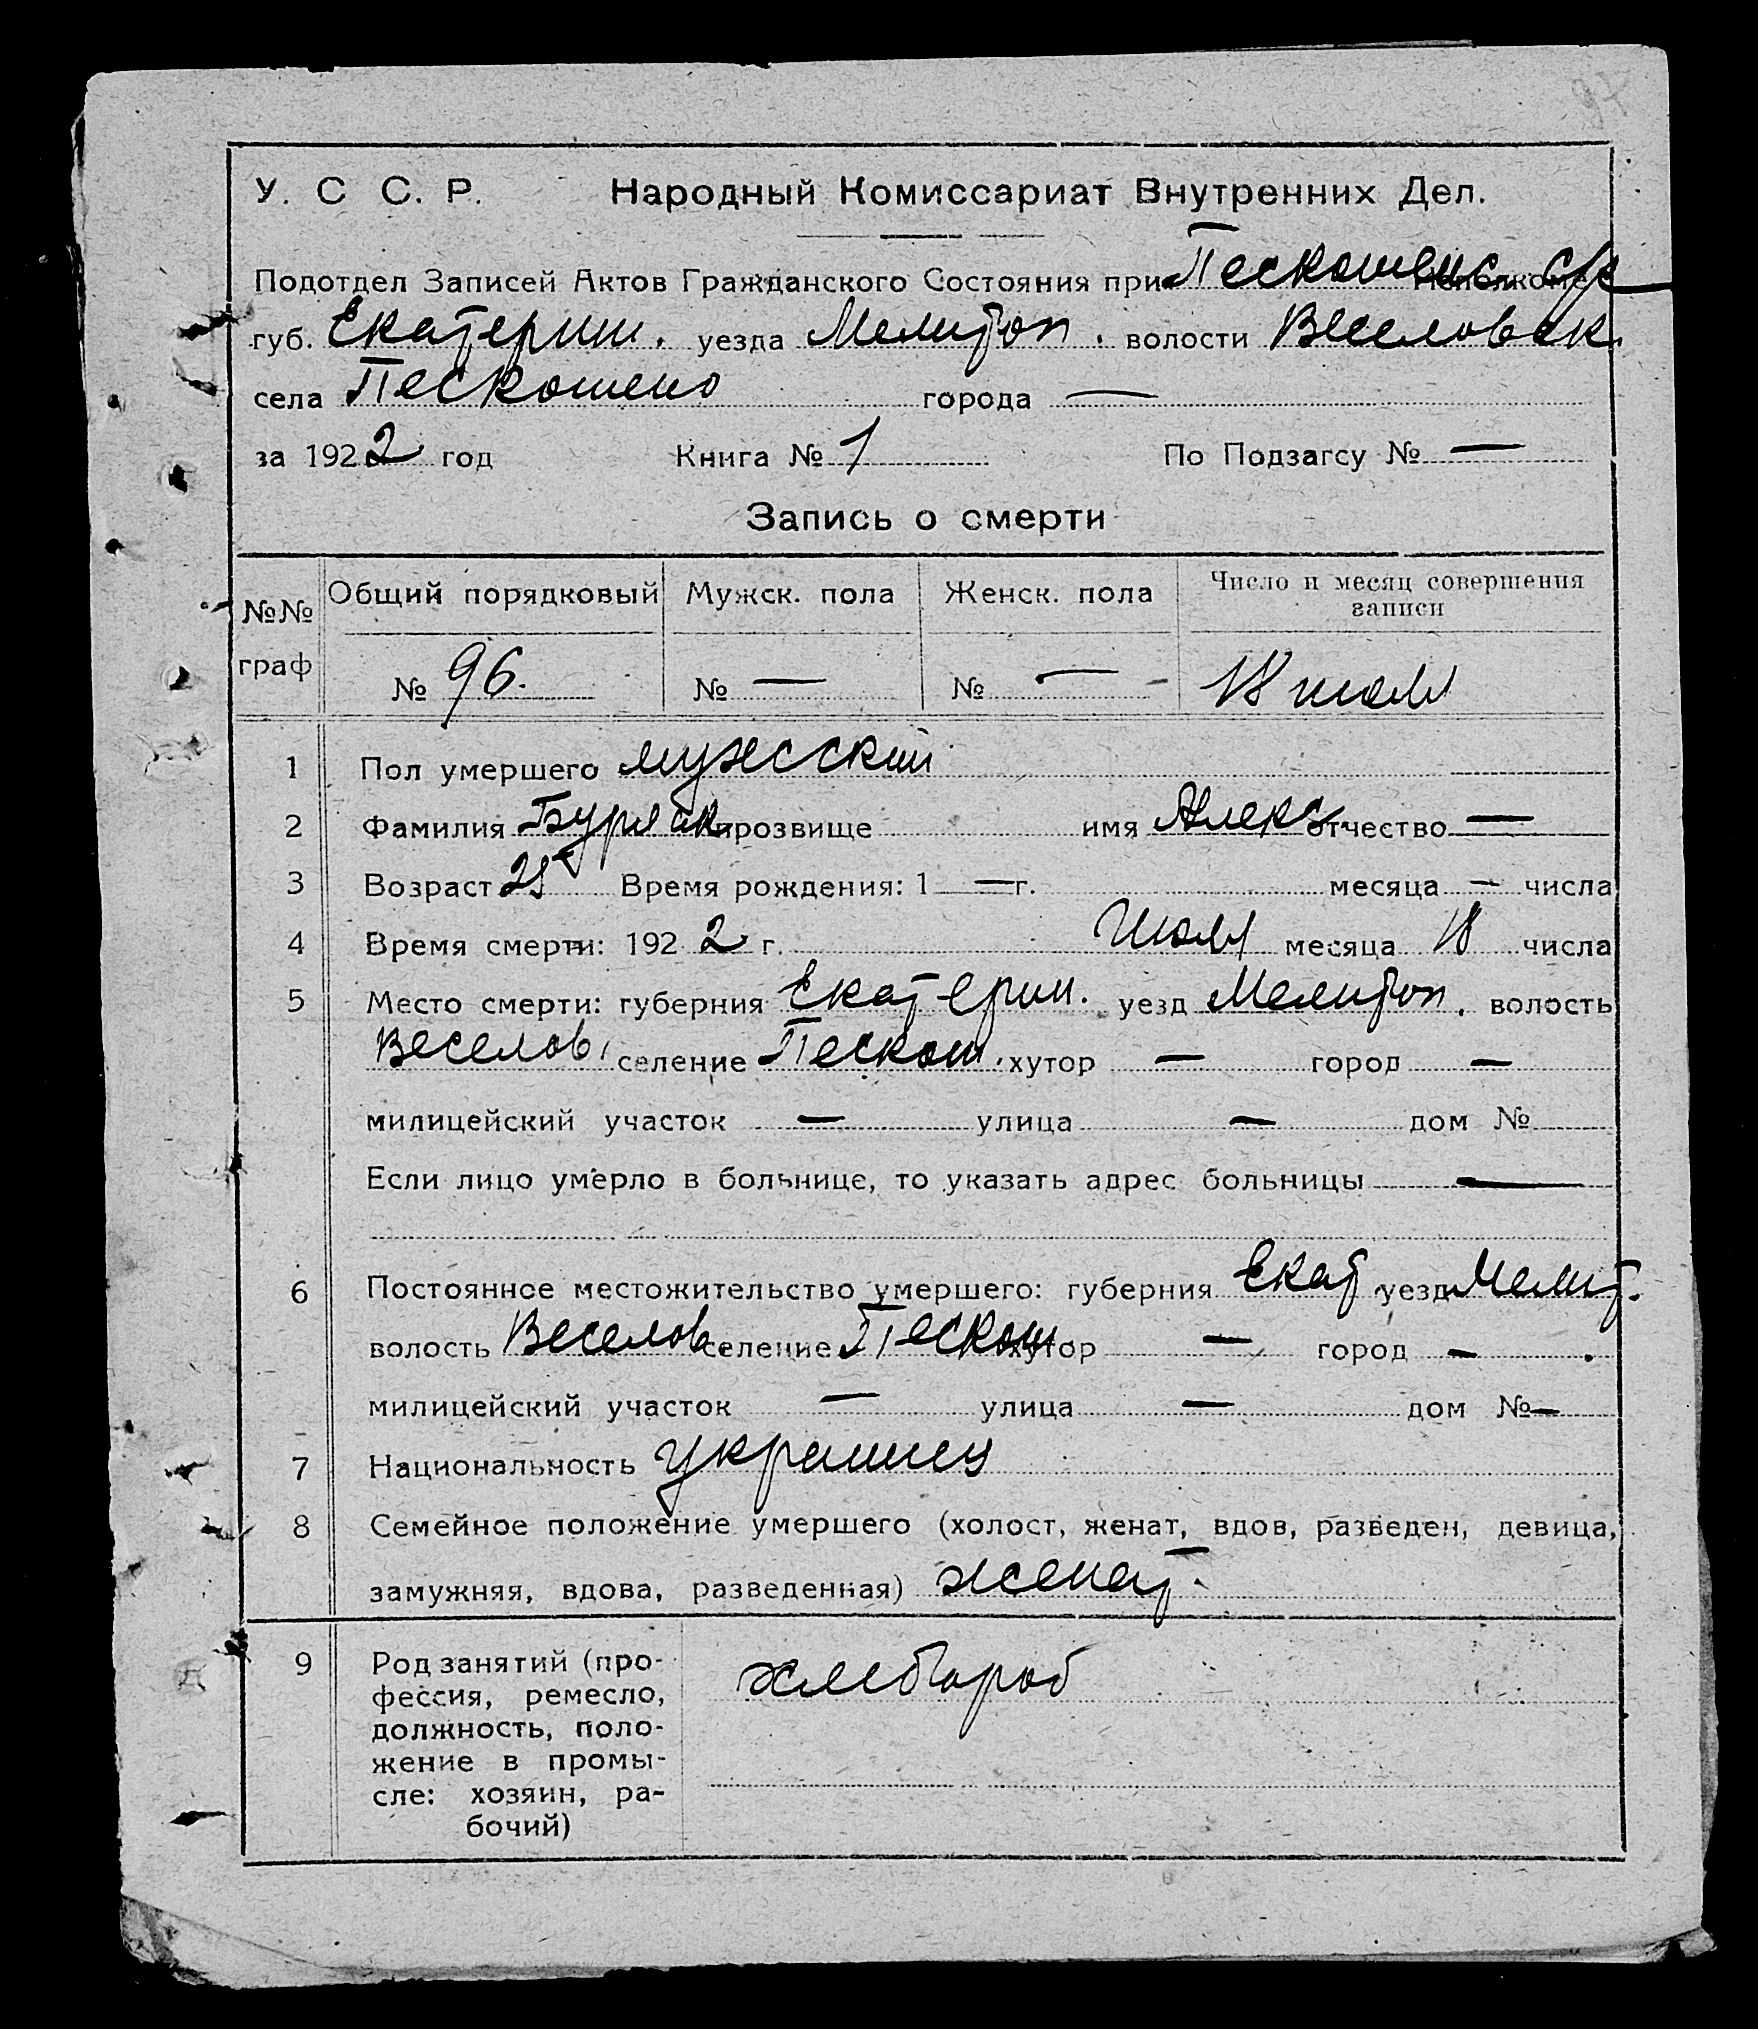 У. С С. Р. Народный Комиссариат Внутренних Дел.
Подотдел Записей Актов Гражданского Состояния при Пескошенс. с/с Исполкоме
губ. Екатерин. уезда Мелитоп. волости Веселовск.
села Пескошено города —
за 1922 год Книга № 1 По Подзагсу № —
Запись о смерти
№№ граф Общий порядковый Мужск. пола Женск. пола Число и месяц совершения записи
№ 96. № — № — 18 июля
1 Пол умершего мужеский
2 Фамилия Буряк прозвище имя Алекс. отчество —
3 Возраст 25 Время рождения: 1 — г. месяца — числа
4 Время смерти: 192 2 г. Июля месяца 18 числа
5 Место смерти: губерния Екатерин. уезд Мелитоп. волость
Веселов. селение Пескош. хутор — город —
милицейский участок — улица — дом №
Если лицо умерло в больнице, то указать адрес больницы —
6 Постоянное местожительство умершего: губерния Екат. уезд Мелит.
волость Веселов селение Пескош хутор — город —
милицейский участок — улица — дом № —
7 Национальность украинец
8 Семейное положение умершего (холост, женат, вдов, разведен, девица,
замужняя, вдова, разведенная) женат.
9 Род занятий (про- хлебороб
фессия, ремесло,
должность, поло-
жение в промы-
сле: хозяин, ра-
бочий)